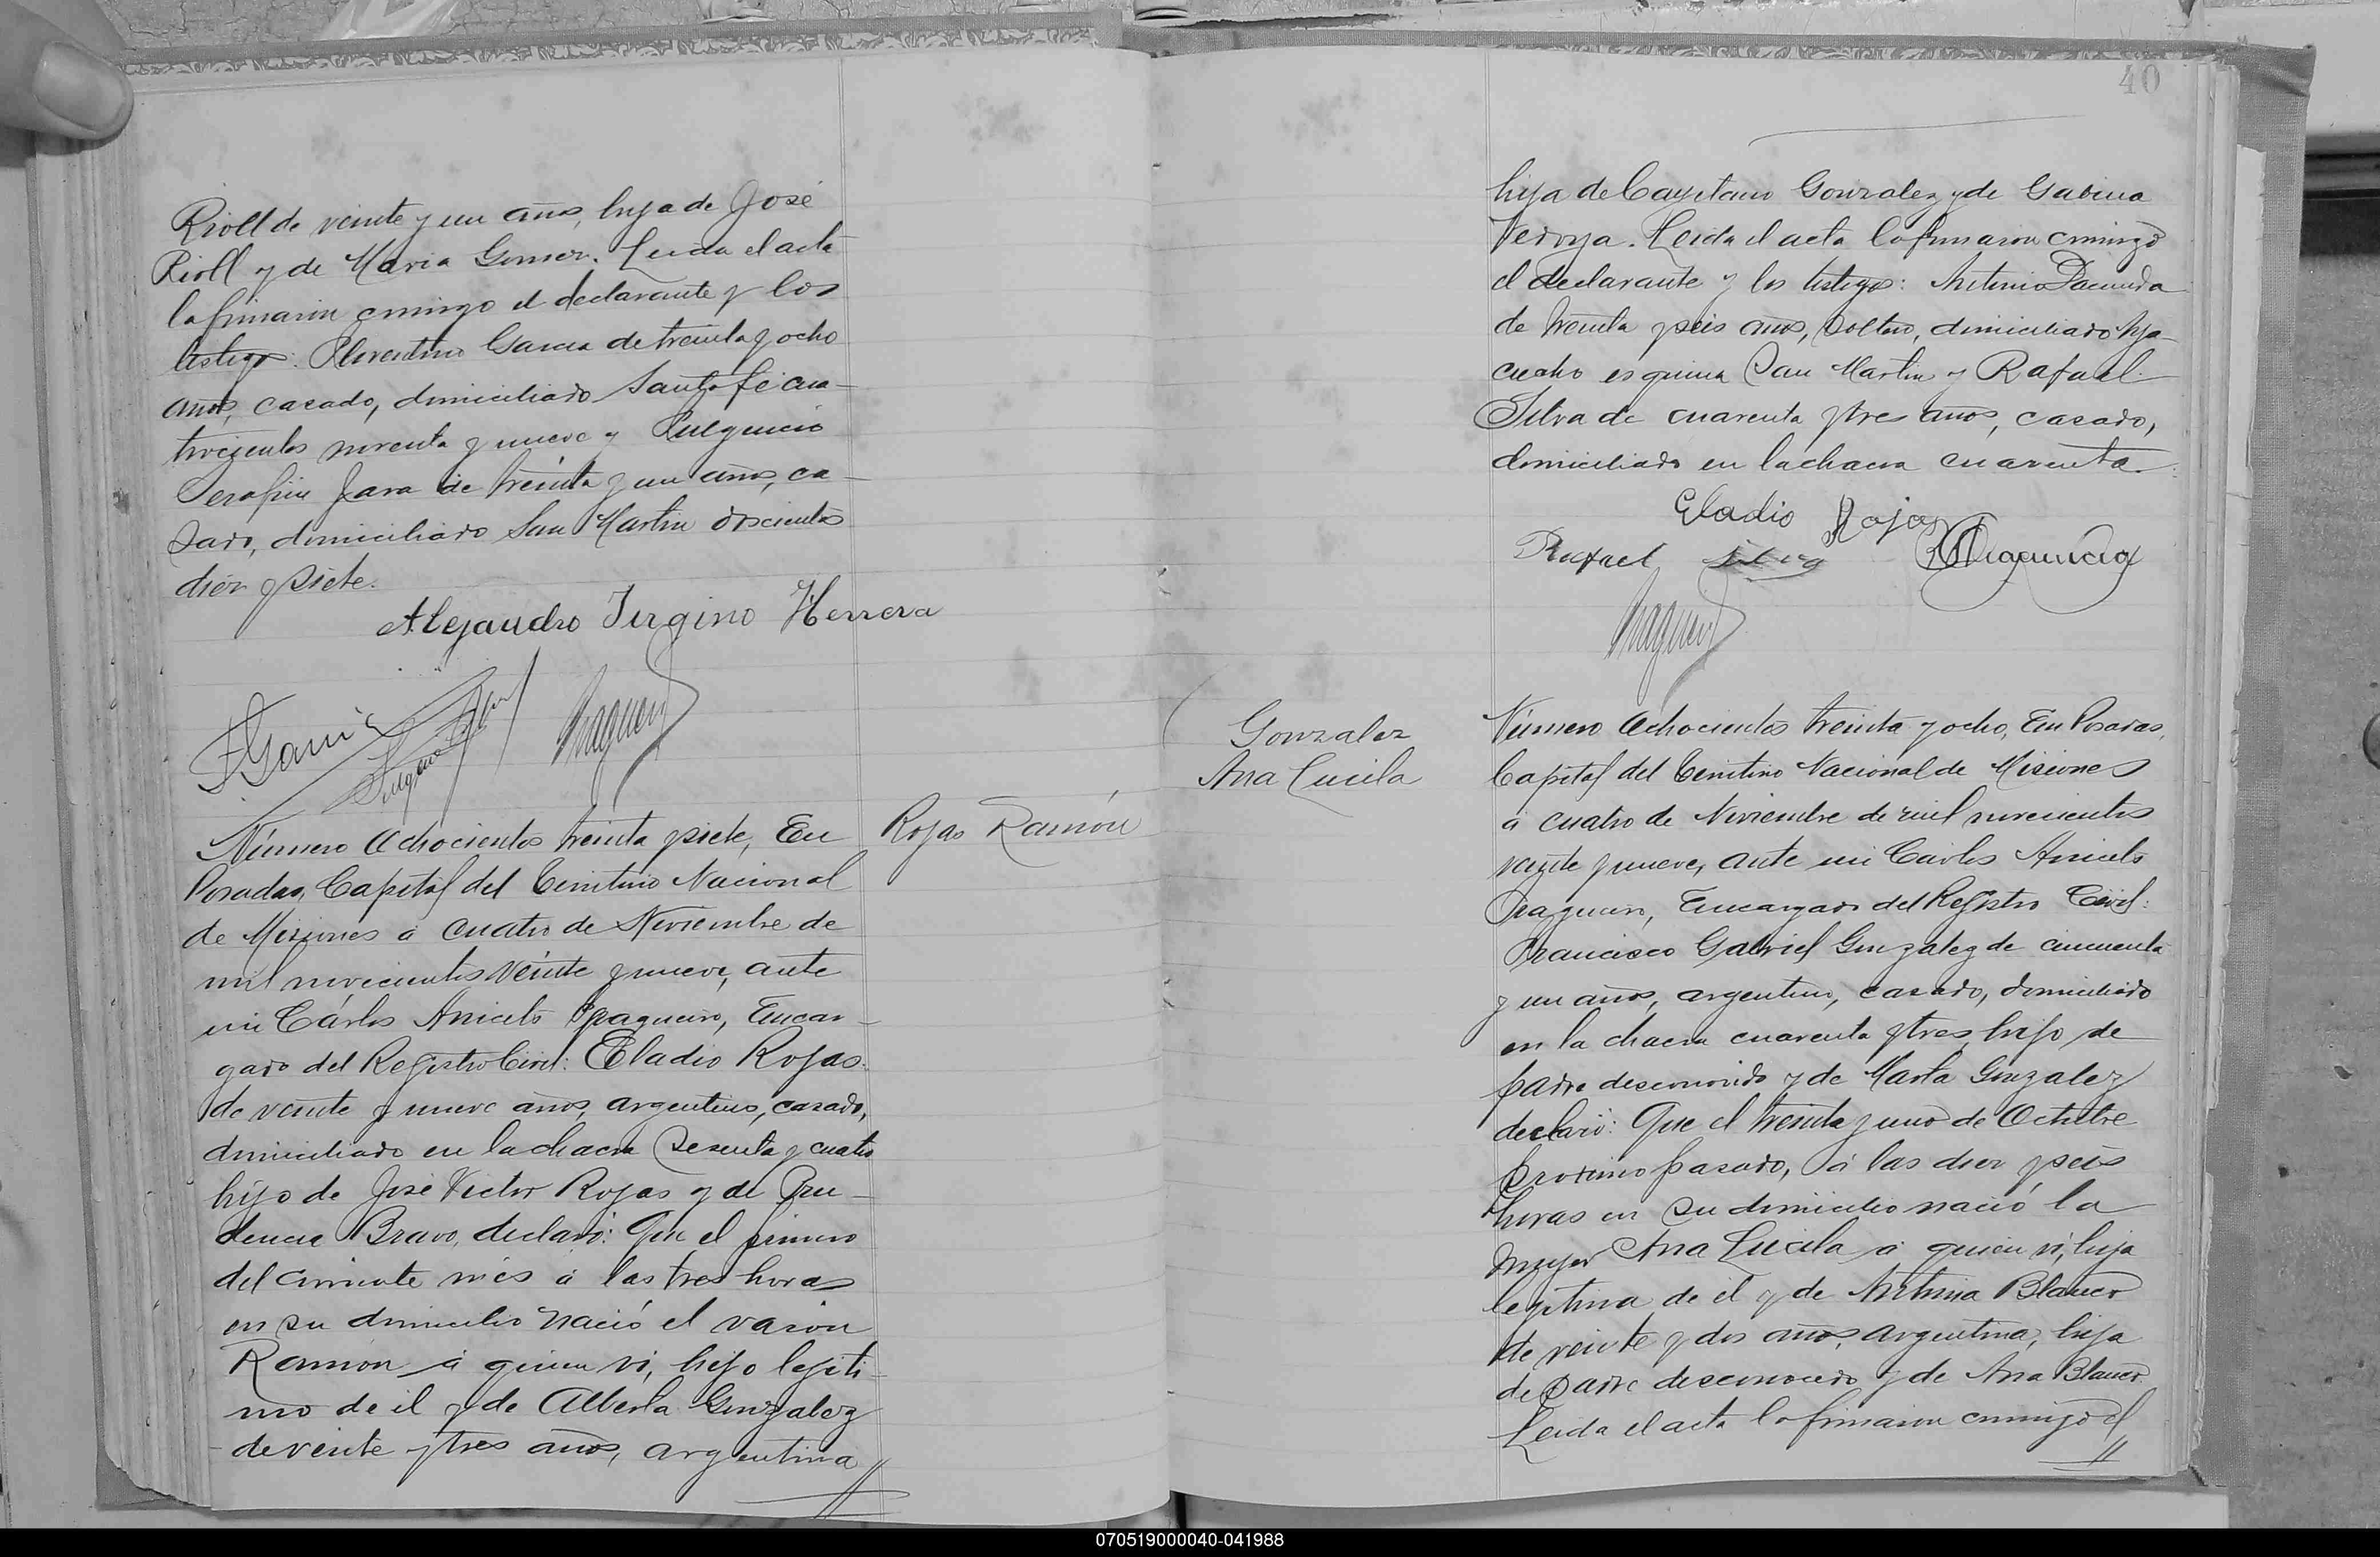 Rioll de veinte y un años, hija de José
Rioll y de Maria Gomez. Leida el acta
la firmaron conmigo el declarante y los
testigos: Florentino Garcia de treinta y ocho
años, casado, domiciliado Santa fé cua-
trocientos noventa y nueve y Fulgencio
Serafin Jara de treinta y un años, ca-
sado, domiciliado San Martin doscientos
diez y siete.
Alejandro Virgino Herrera
FGarcia
Número Ochocientos treinta y siete, En
Posadas, Capital del Territorio Nacional
de Misiones á cuatro de Noviembre de
mil novecientos veinte y nueve, ante
mi Cárlos Aniceto Fragueiro, Encar-
gado del Registro Civil: Eladio Rojas
de veinte y nueve años, argentino, casado,
domiciliado en la chacra sesenta y cuatro
hijo de José Victor Rojas y de Pru-
dencia Bravo, declaró: Que el primero
del corriente més á las tres horas
en su domicilio nació el varon
Ramon á quien vi, hijo legiti-
mo de él y de Alberta Gonzalez
de veinte y tres años, argentina
Rojas Ramón
40
hija de Cayetano Gonzalez y de Gabina
Vedoya. Leida el acta la firmaron conmigo
el declarante y los testigos: Antonio
de treinta y seis años, soltero, domiciliado
cuatro esquina San Martin y Rafael
Silva de cuarenta y tres años, casado,
domiciliado en la chacra cuarenta.
Eladio Rojas
Rafael Silva
Gonzalez
Ana Lucila
Número Ochocientos treinta y ocho, En Posadas,
Capital del Territorio Nacional de Misiones
á cuatro de Noviembre de mil novecientos
veinte y nueve, ante mi Cárlos Aniceto
Fragueiro, Encargado del Registro Civil:
Francisco Gabriel Gonzalez de cincuenta
y un años, argentino, casado, domiciliado
en la chacra cuarenta y tres, hijo de
padre desconocido y de Marta Gonzalez
declaró: Que el treinta y uno de Octubre
proximo pasado, á las diez y seis
horas en su domicilio nació la
mujer Ana Lucila á quien vi, hija
legitima de él y de Antonia Blanco
de veinte y dos años, argentina, hija
de padre desconocido y de Ana Blanco
Leida el acta la firmaron conmigo el
070519000040-041988